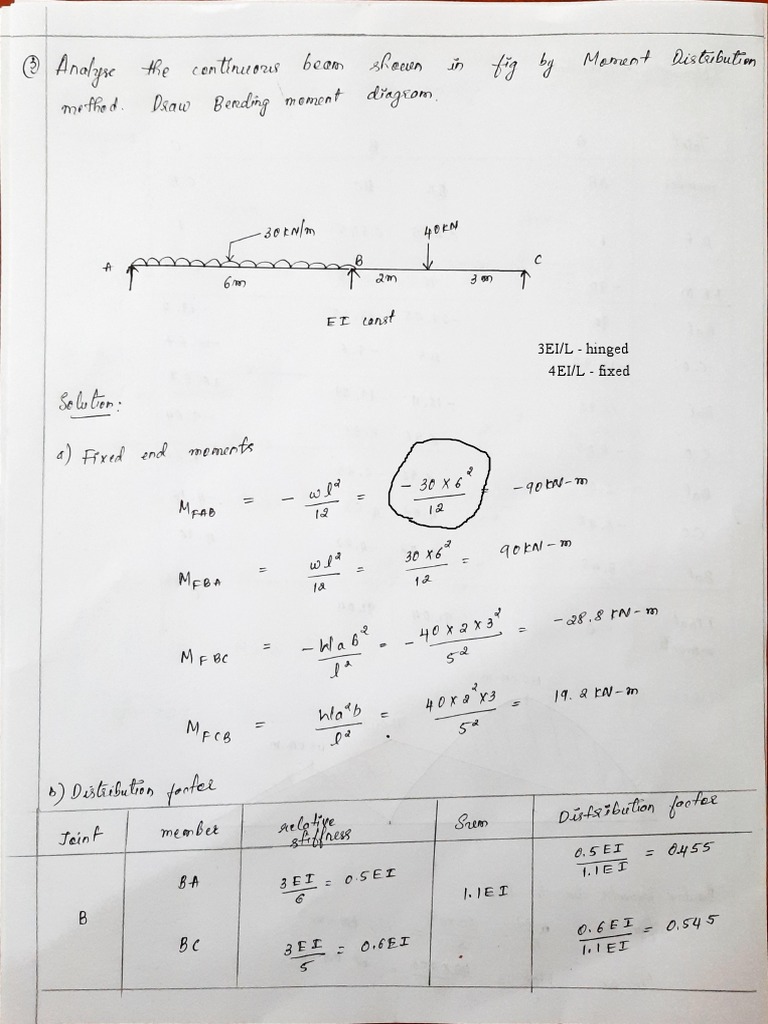 ③ Analyse the continuous beam shown in fig by Moment Distribution
method. Draw Bending moment diagram.
30 KN/m
40KN
A
B
C
6m
2m
3m
EI const
3EI/L - hinged
4EI/L - fixed
Solution:
a) Fixed end moments
M_FAB = - wl²/12 = - 30 × 6²/12 = -90 KN-m
M_FBA = wl²/12 = 30 × 6²/12 = 90 KN-m
M_FBC = - Wab²/l² = - 40 × 2 × 3²/5² = -28.8 KN-m
M_FCB = Wa²b/l² = 40 × 2² × 3/5² = 19.2 KN-m
b) Distribution factor
Joint member relative stiffness Sum Distribution factor
B
BA 3EI/6 = 0.5EI
1.1EI
0.5EI/1.1EI = 0.455
BC 3EI/5 = 0.6EI
0.6EI/1.1EI = 0.545